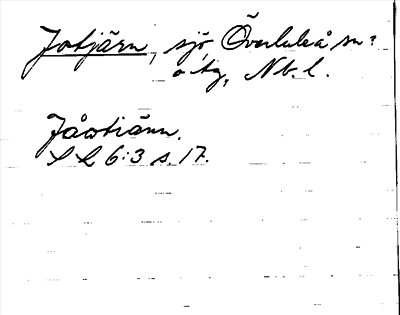 Jotjärn, sjö, Överluleå sn?
o tg, Nb. l.
Jåwtiänn.
S L 6:3 s. 17.